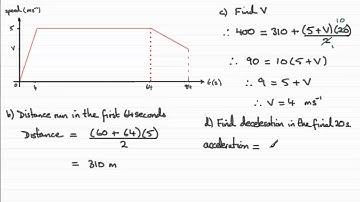 speed (ms⁻¹)
5
V
0
4
64
84
t(s)
b) Distance run in the first 64 seconds
Distance = (60 + 64)(5)
2
= 310 m
c) Find V
∴ 400 = 310 + (5+V)(20) 10
2 1
∴ 90 = 10(5+V)
∴ 9 = 5 + V
∴ V = 4 ms⁻¹
d) Find deceleration in the final 20s
acceleration =